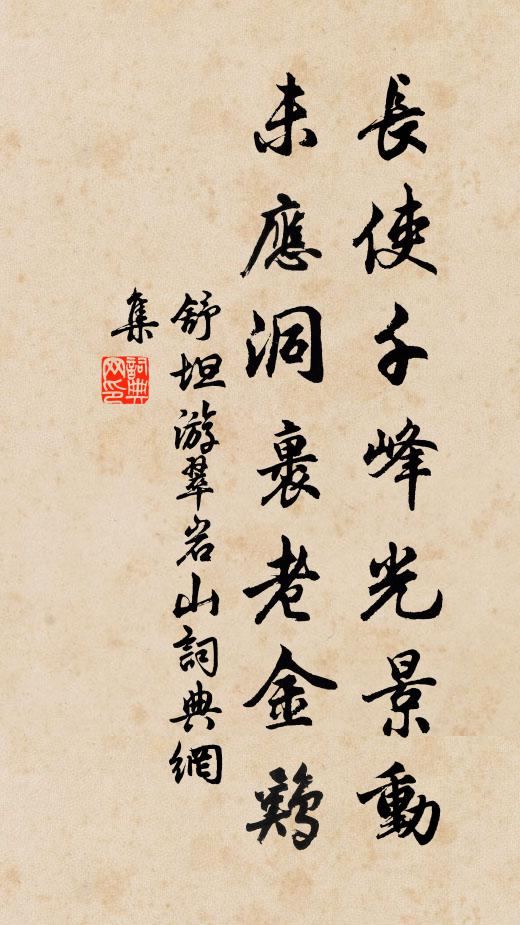 長使千峰光景動
未應洞裏老金鷄
舒坦游翠岩山詞典網
集
詞典网印